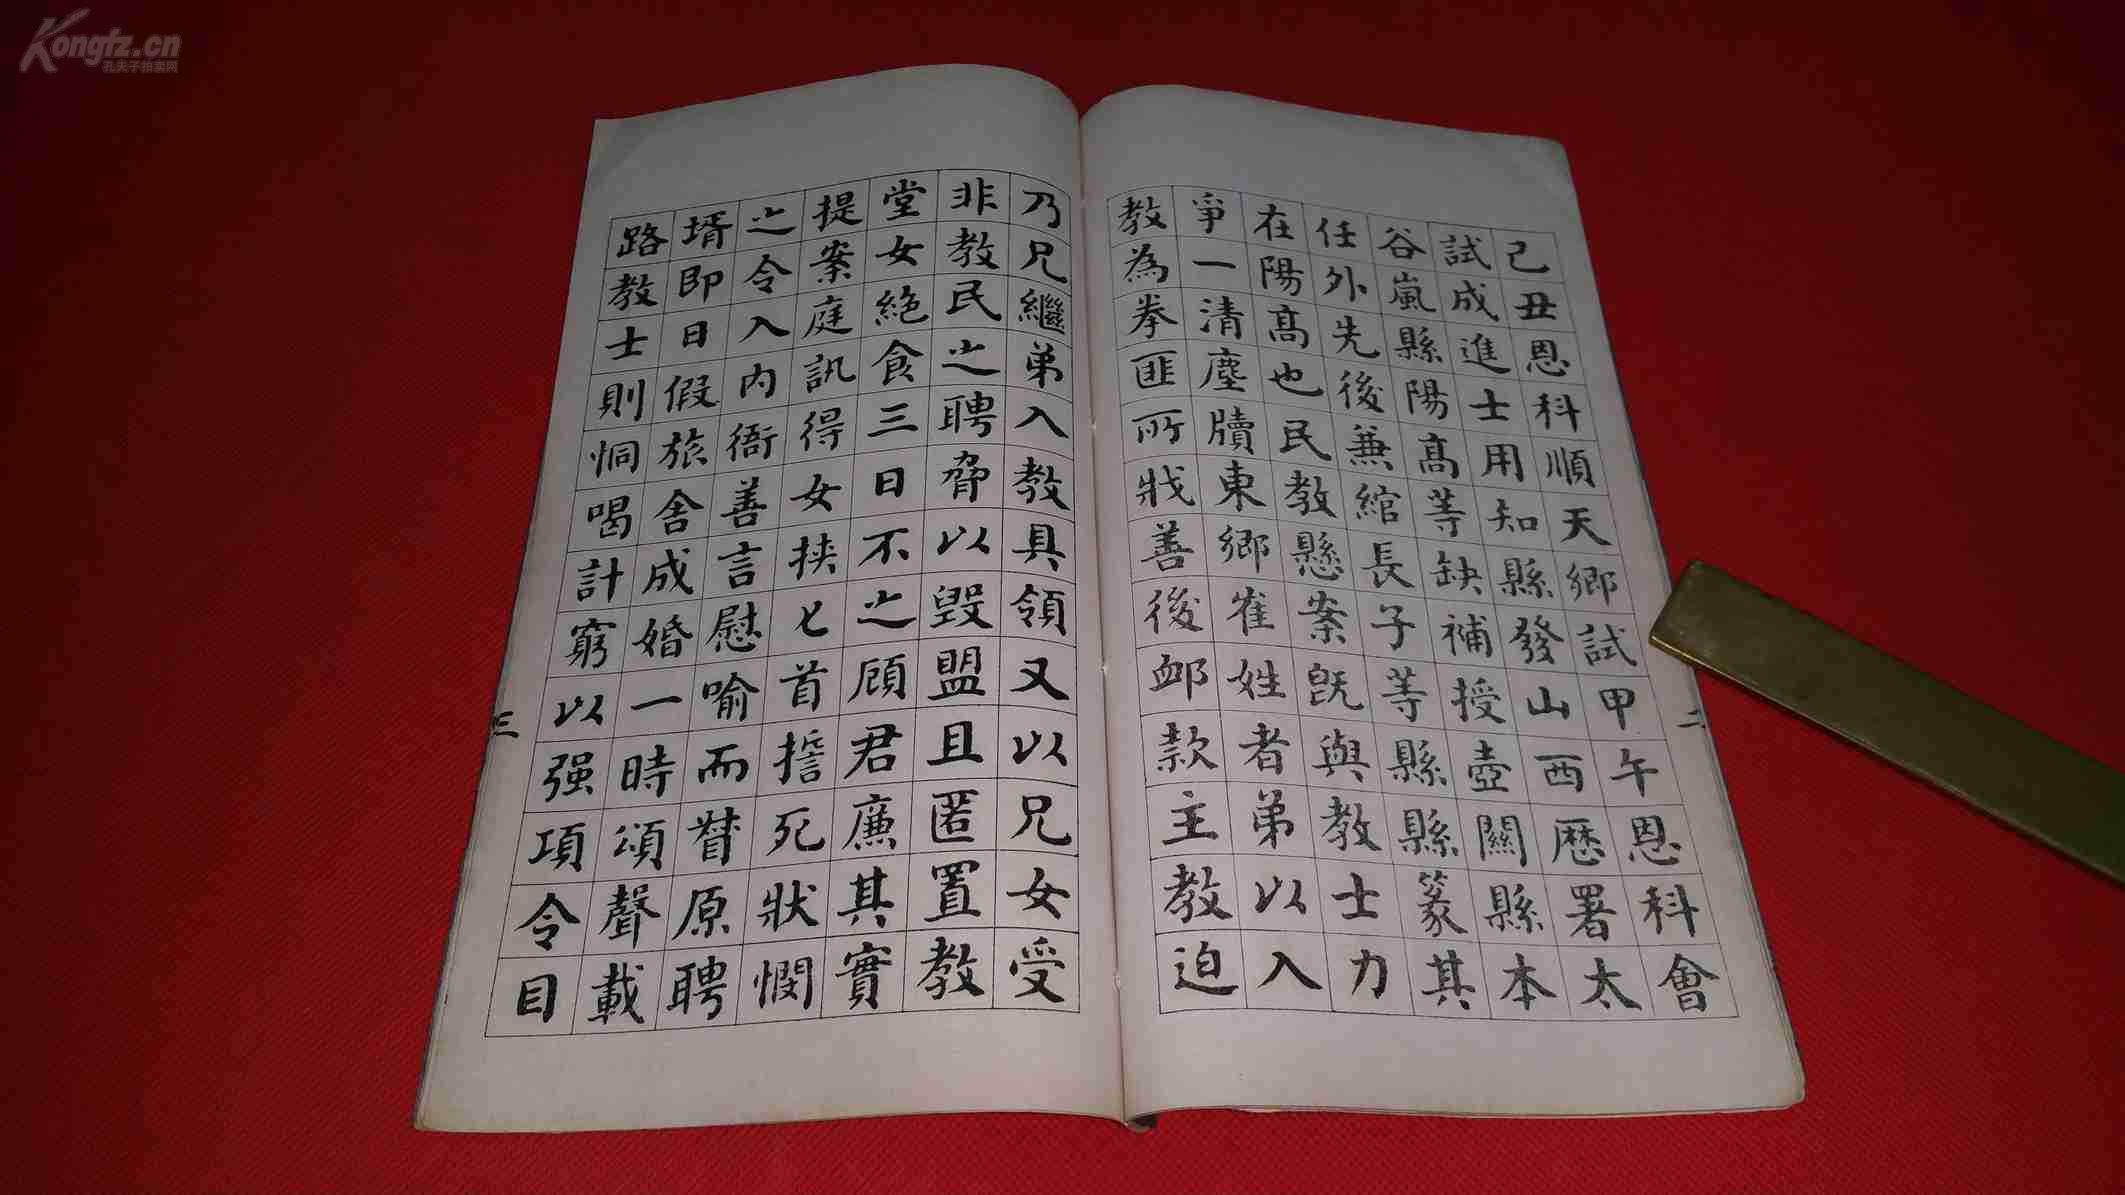 己丑恩科順天鄉試甲午恩科會
試成進士用知縣發山西歷署太
谷嵐縣陽髙等缺補授壺關縣本
任外先後兼綰長子等縣縣篆其
在陽髙也民教懸案既與教士力
爭一清塵牘東鄉崔姓者弟以入
教為拳匪所戕善後卹款主教迫
二
乃兄繼弟入教具領又以兄女受
非教民之聘脅以毀盟且匿置教
堂女絕食三日不之顧君廉其實
提案庭訊得女挾匕首誓死狀憫
之令入內衙善言慰喻而督原聘
壻即日假旅舍成婚一時頌聲載
路教士則恫喝計窮以强項令目
三
Kongfz.cn
孔夫子拍卖网